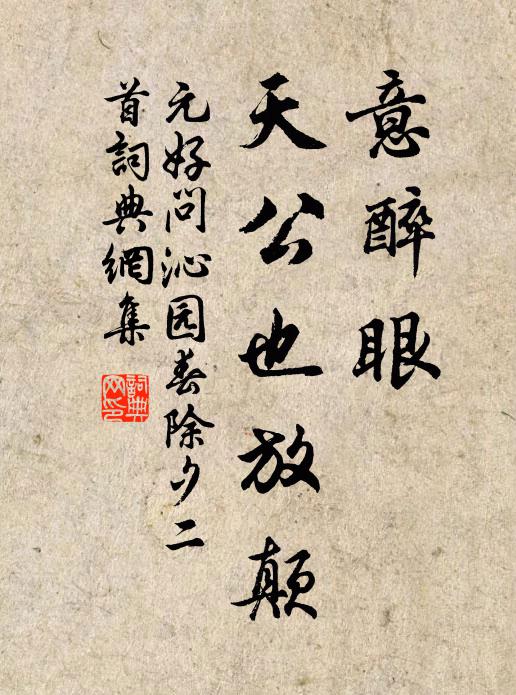 意醉眼
天公也放颠
元好问沁园春除夕二
首詞典網集
詞典
网印